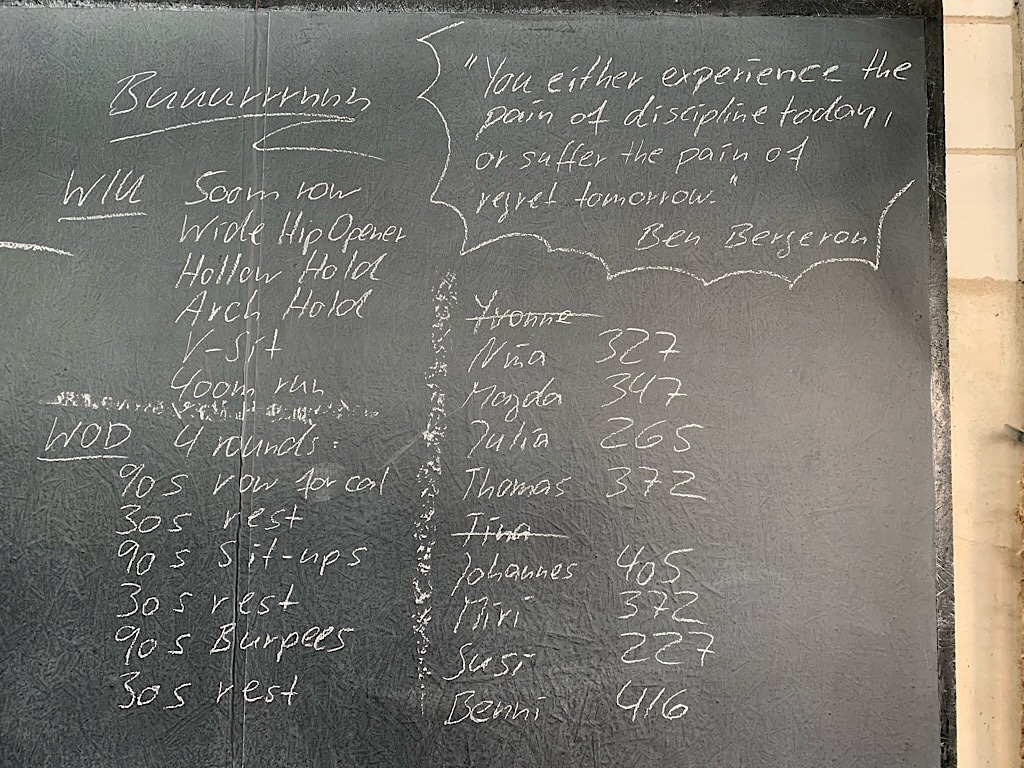 Buuurrrnnn
W/U 500m row
Wide Hip Opener
Hollow Hold
Arch Hold
V-sit
400m run
WOD 4 rounds:
90s row for cal
30s rest
90s Sit-ups
30s rest
90s Burpees
30s rest
"You either experience the
pain of discipline today,
or suffer the pain of
regret tomorrow."
Ben Bergeron
Yvonne
Nina 327
Magda 347
Julia 265
Thomas 372
Tina
Johannes 405
Miri 372
Susi 227
Benni 416